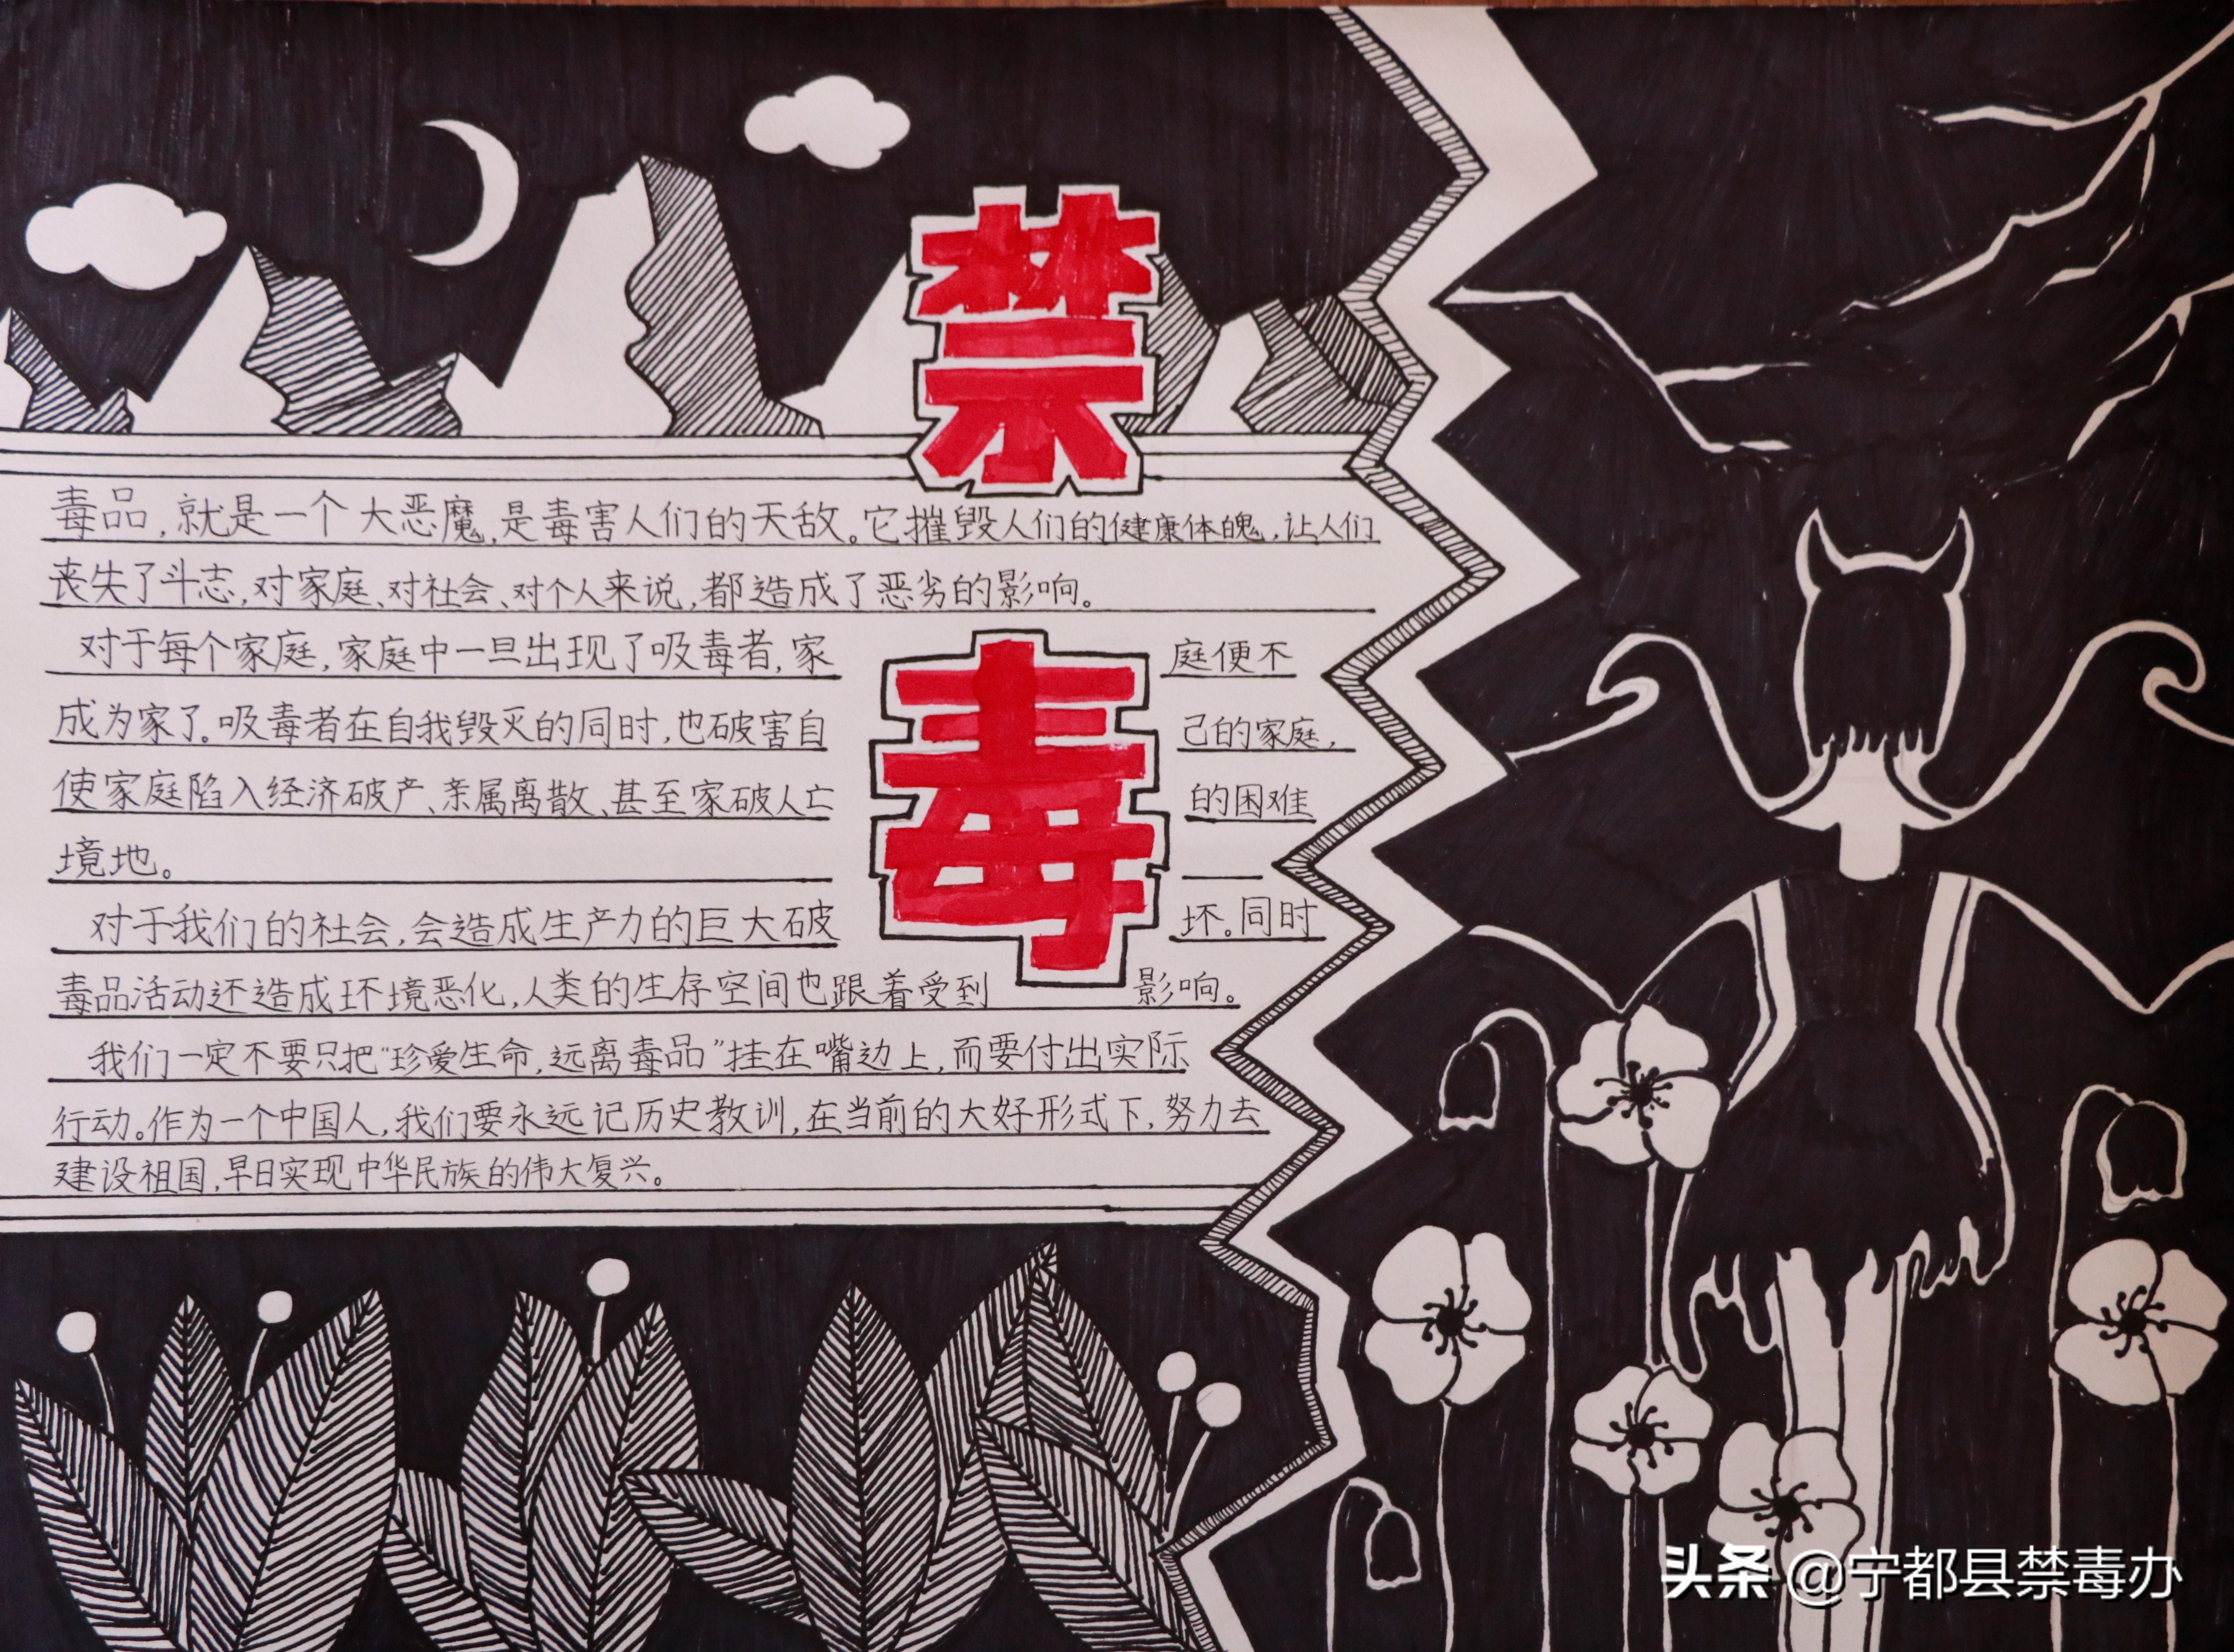 禁
毒
毒品，就是一个大恶魔，是毒害人们的天敌。它摧毁人们的健康体魄，让人们
丧失了斗志，对家庭、对社会、对个人来说，都造成了恶劣的影响。
对于每个家庭，家庭中一旦出现了吸毒者，家庭便不
成为家了。吸毒者在自我毁灭的同时，也破害自己的家庭，
使家庭陷入经济破产、亲属离散、甚至家破人亡的困难
境地。
对于我们的社会，会造成生产力的巨大破坏。同时
毒品活动还造成环境恶化，人类的生存空间也跟着受到影响。
我们一定不要只把“珍爱生命，远离毒品”挂在嘴边上，而要付出实际
行动。作为一个中国人，我们要永远记历史教训，在当前的大好形式下，努力去
建设祖国，早日实现中华民族的伟大复兴。
头条 @宁都县禁毒办